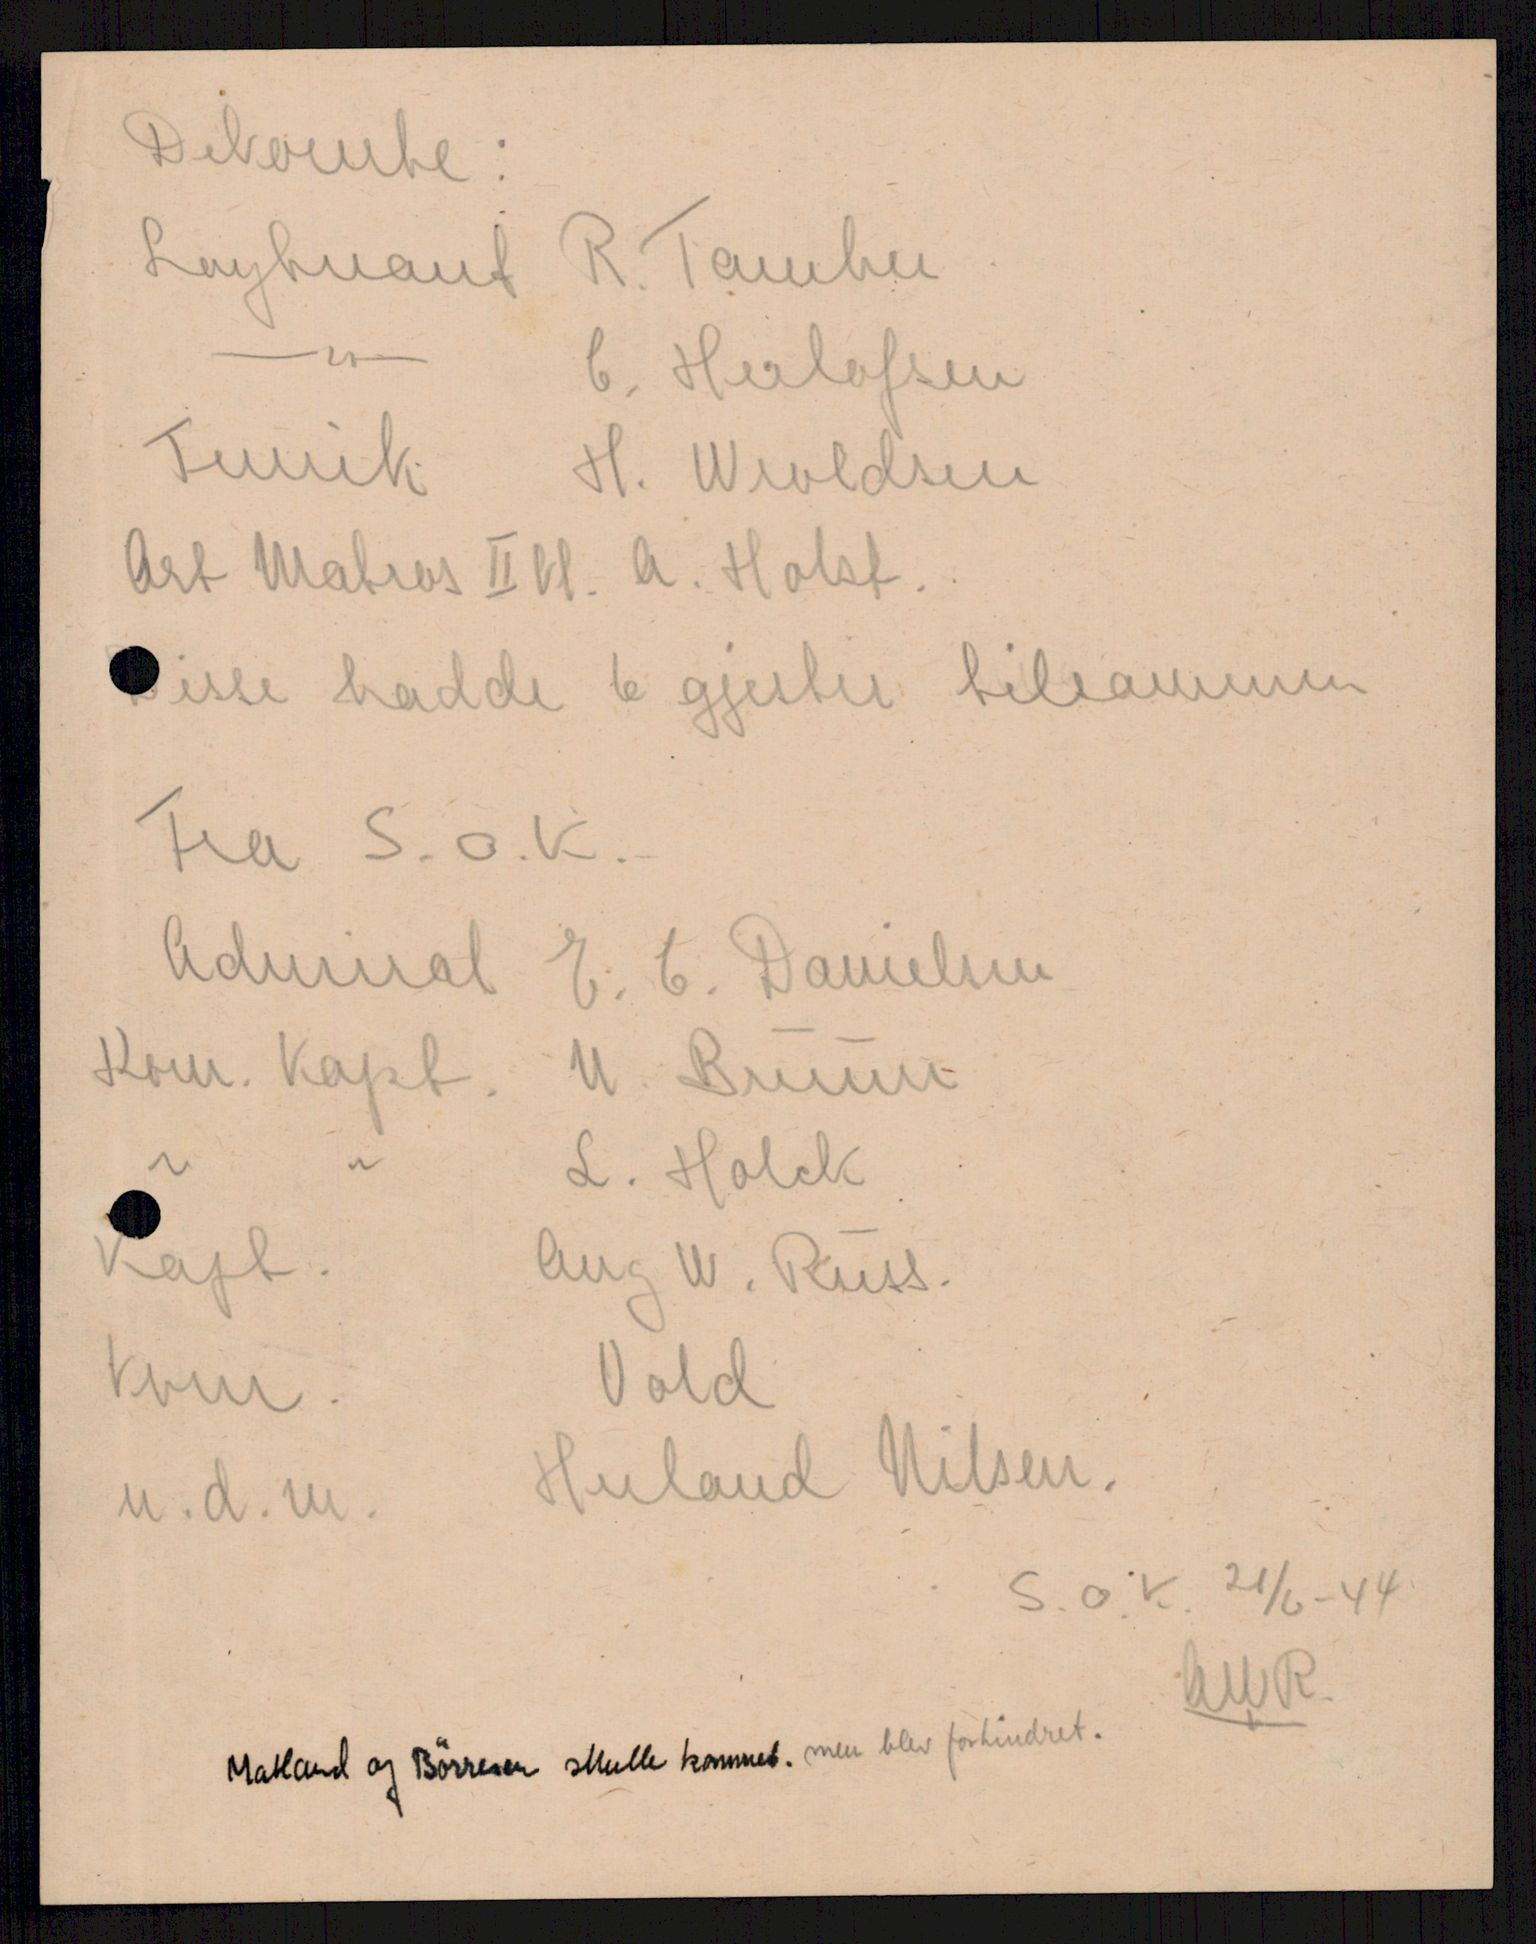 Dekorerte:
Løytnant R. Tambur
—"— C. Herlofsen
Fenrik H. Wroldsen
Art Matros II Kl. A. Holst.
Disse hadde 6 gjester tilsammen
Fra S.O.K.
Admiral E. C. Danielsen
Kom. Kapt. N. Bruun
" " L. Holck
Kapt. Aug W. Russ.
Kom. Vold
u.d.m. Herland Nilsen.
S.O.K. 21/6-44
AWR.
Matland og Börresen skulle kommet. men blev forhindret.